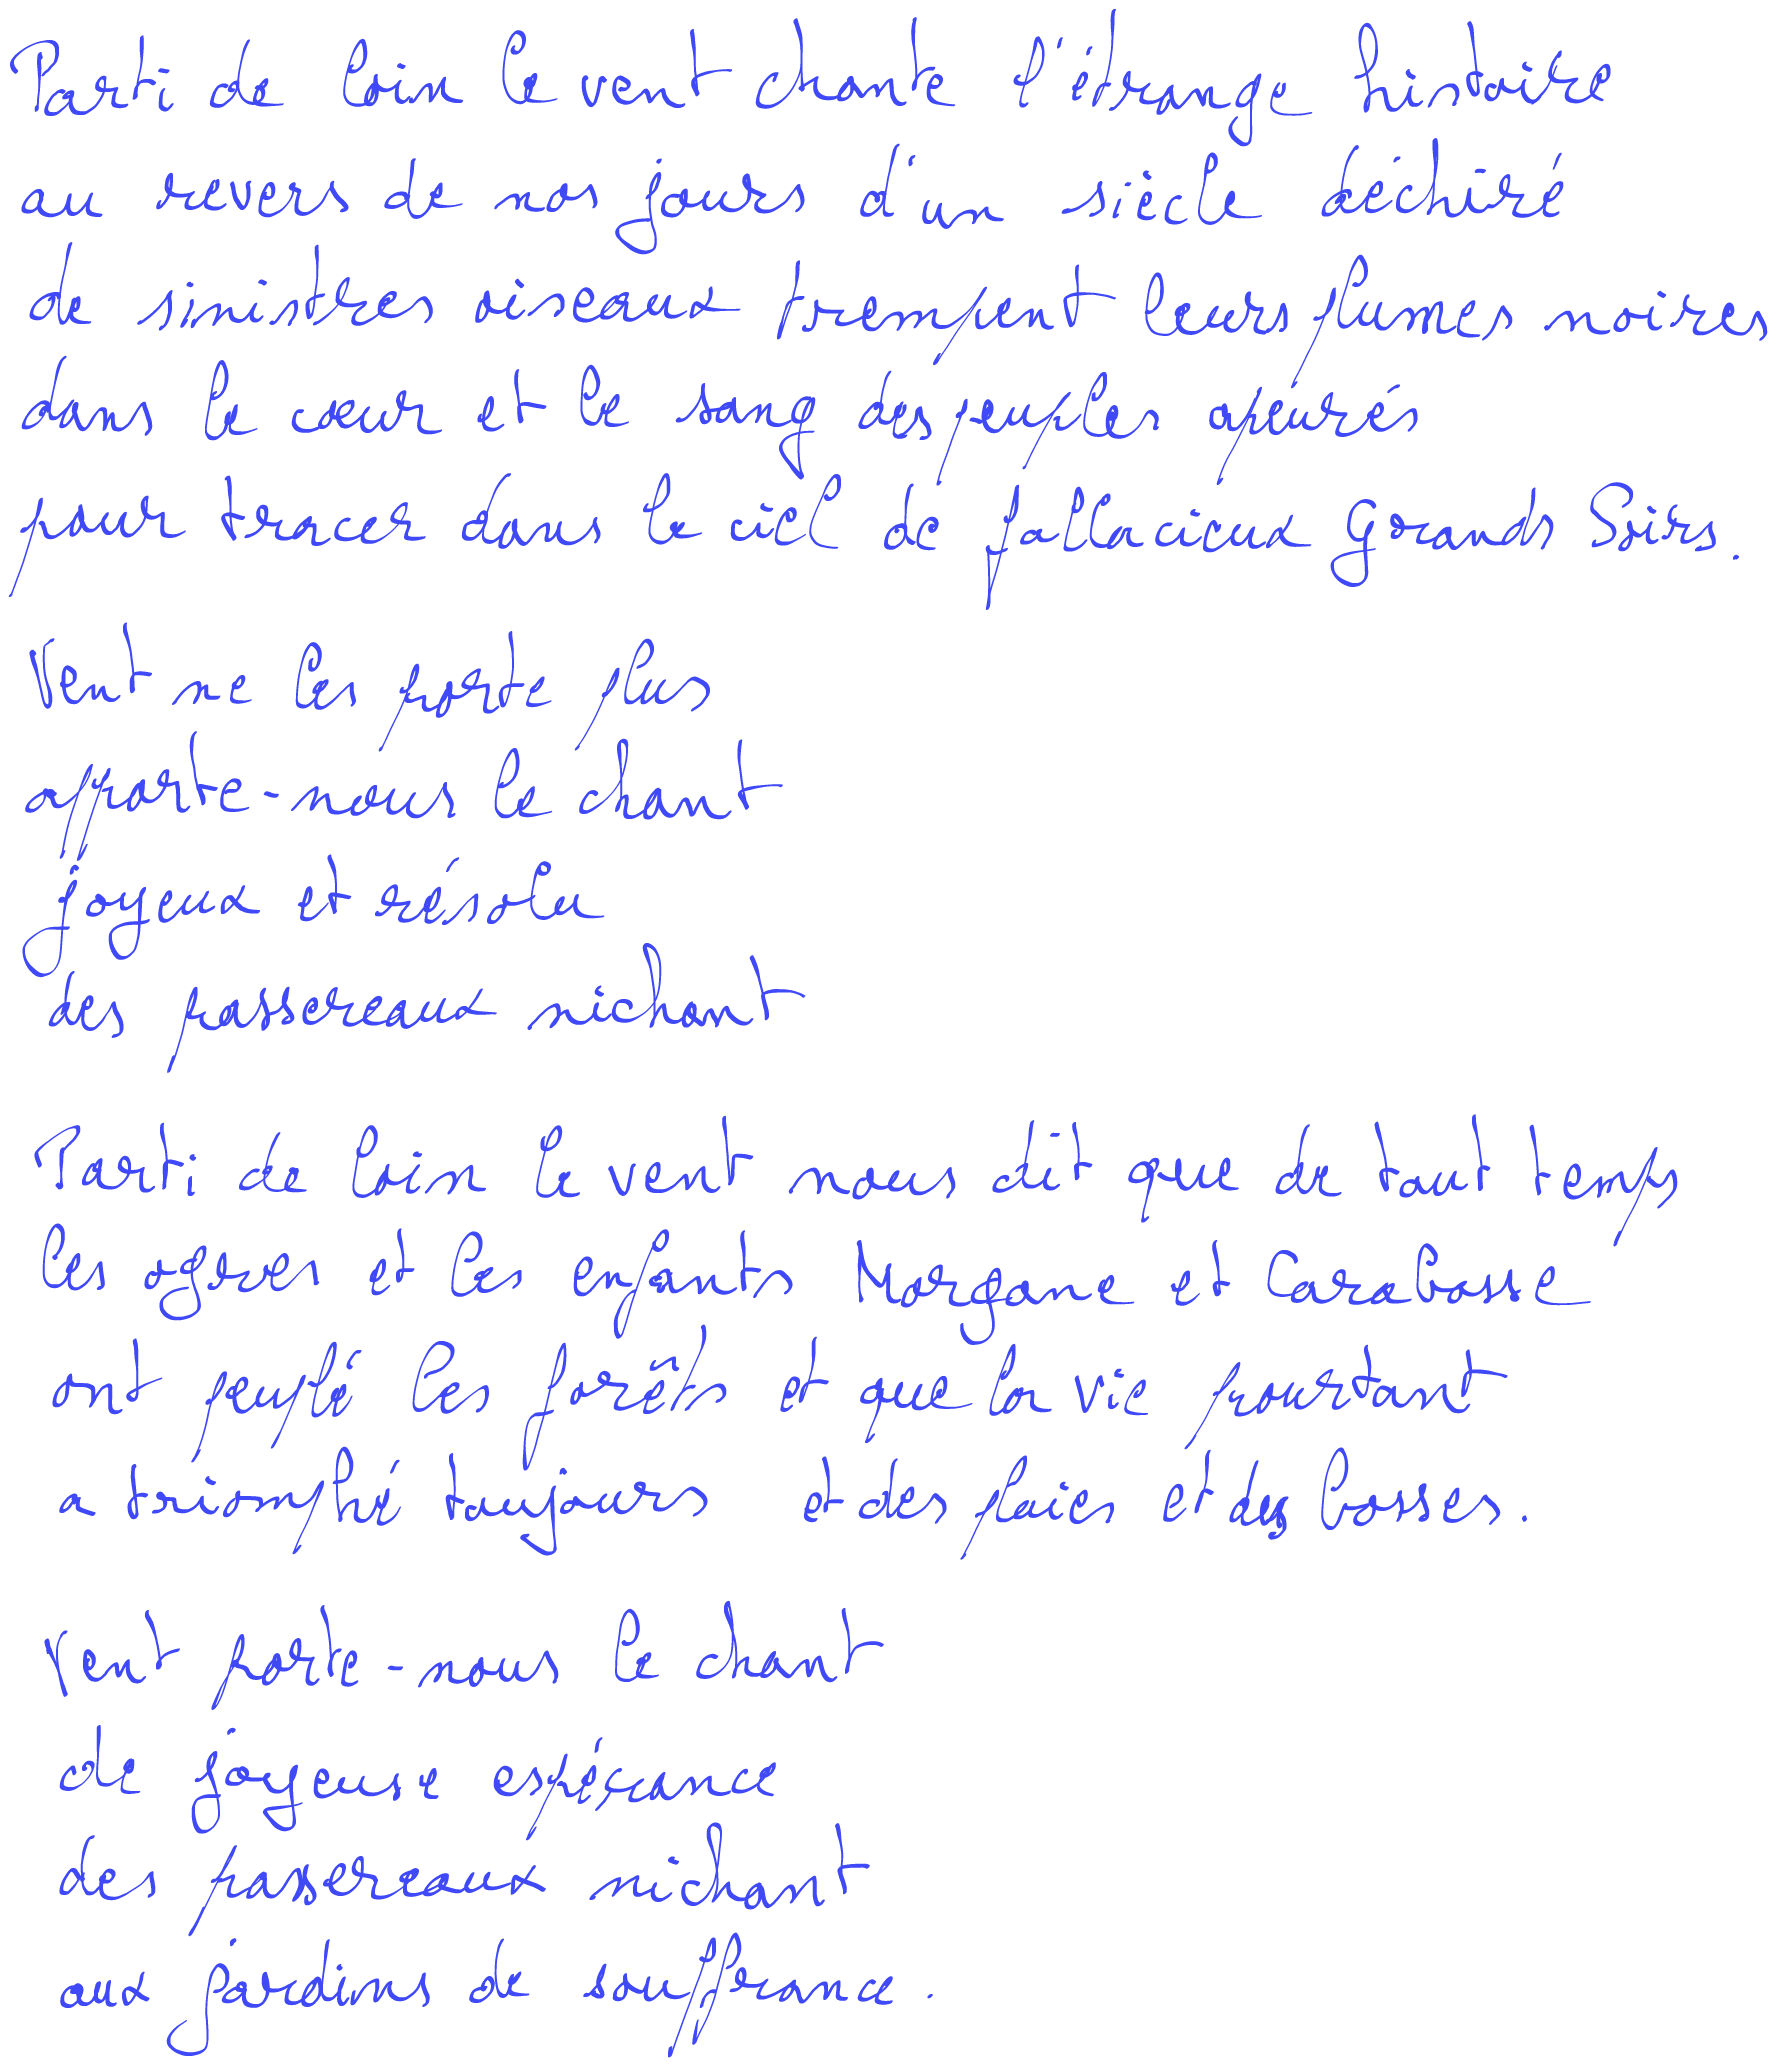 Parti de loin le vent chante l'étrange histoire
au revers de nos jours d'un siècle déchiré
de sinistres oiseaux trempent leurs plumes noires
dans le cœur et le sang des peuples apeurés
pour tracer dans le ciel de fallacieux Grands Soirs.
Vent ne les porte plus
apporte-nous le chant
joyeux et résolu
des passereaux nichant
Parti de loin le vent nous dit que de tout temps
les ogres et les enfants Morgane et Carabosse
ont peuplé les forêts et que la vie pourtant
a triomphé toujours et des plaies et des bosses.
Vent porte-nous le chant
de joyeuse espérance
des passereaux nichant
aux jardins de souffrance.